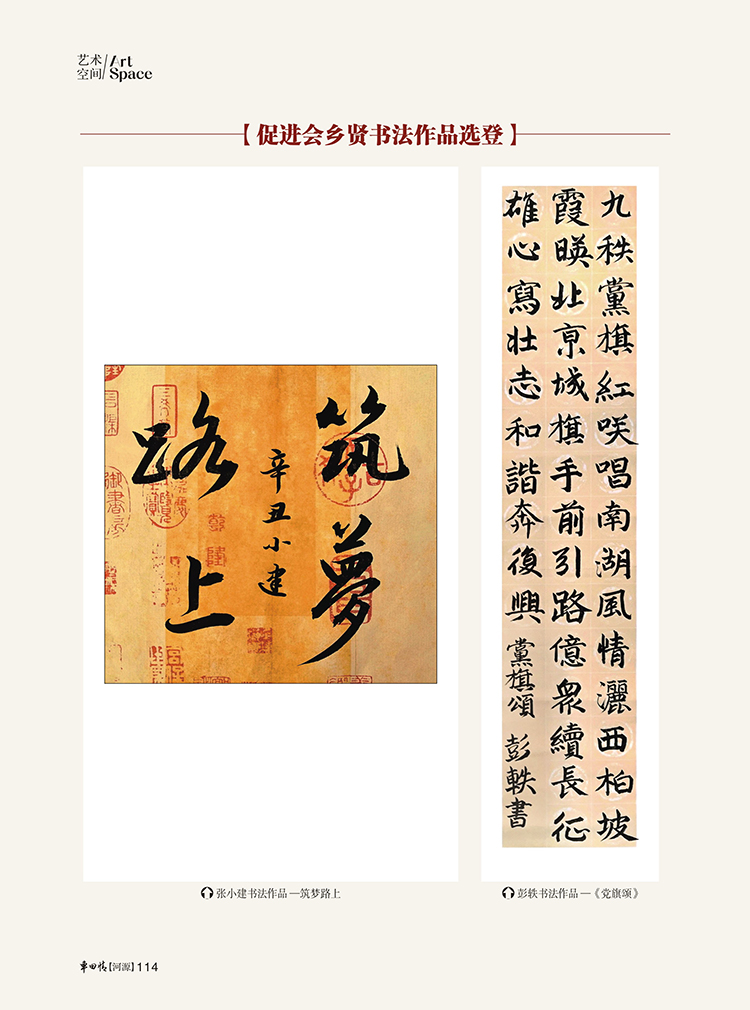 艺术 / Art
空间 / Space
【 促进会乡贤书法作品选登 】
筑夢
辛丑小建
路上
九秩黨旗紅咲唱南湖風情灑西柏坡
霞暎北京城旗手前引路億衆續長征
雄心寫壮志和諧奔復興
黨旗頌
彭軼書
张小建书法作品—筑梦路上
彭轶书法作品—《党旗颂》
车田情【河源】114